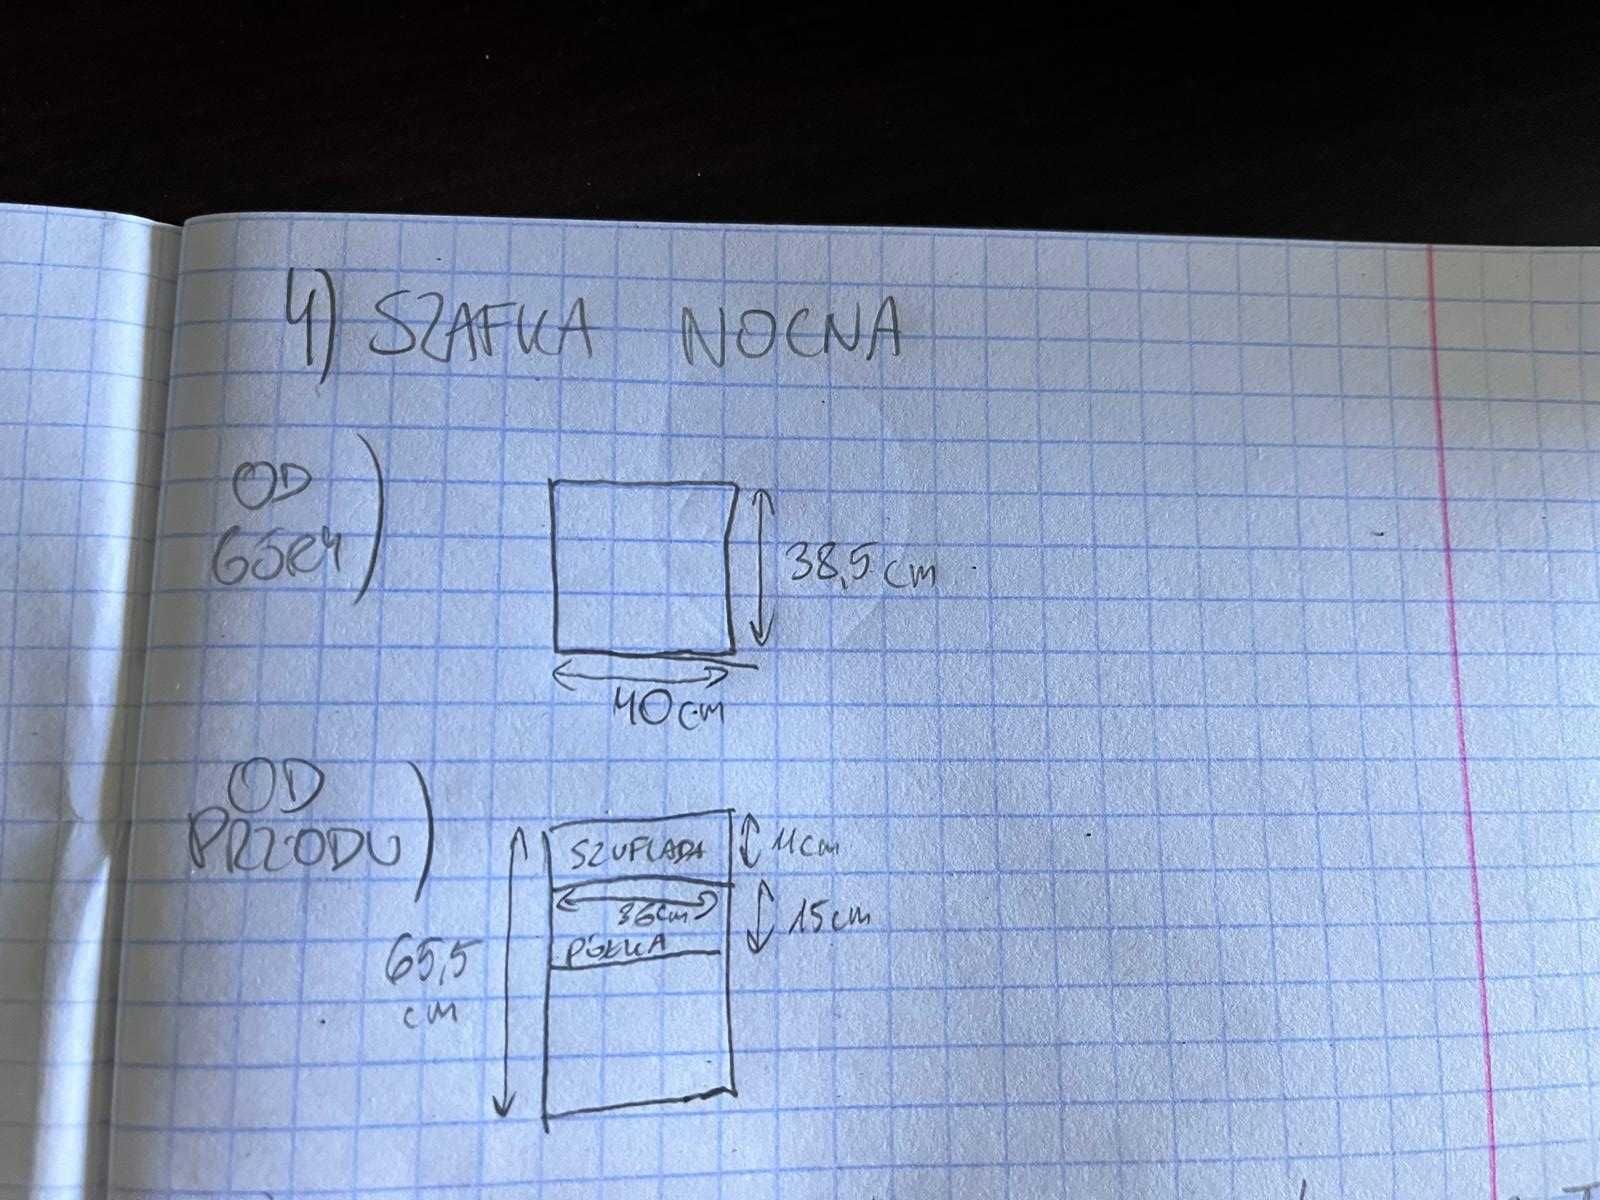 4) SZAFKA NOCNA
OD
GÓRY
38,5 cm
40 cm
OD
PRZODU
SZUFLADA
11 cm
36 cm
15 cm
PÓŁKA
65,5
cm